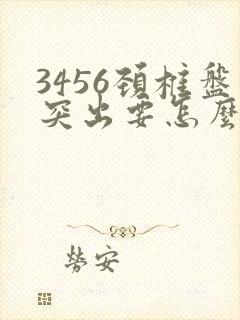 3456頚椎盤
突出要怎麼
勞安